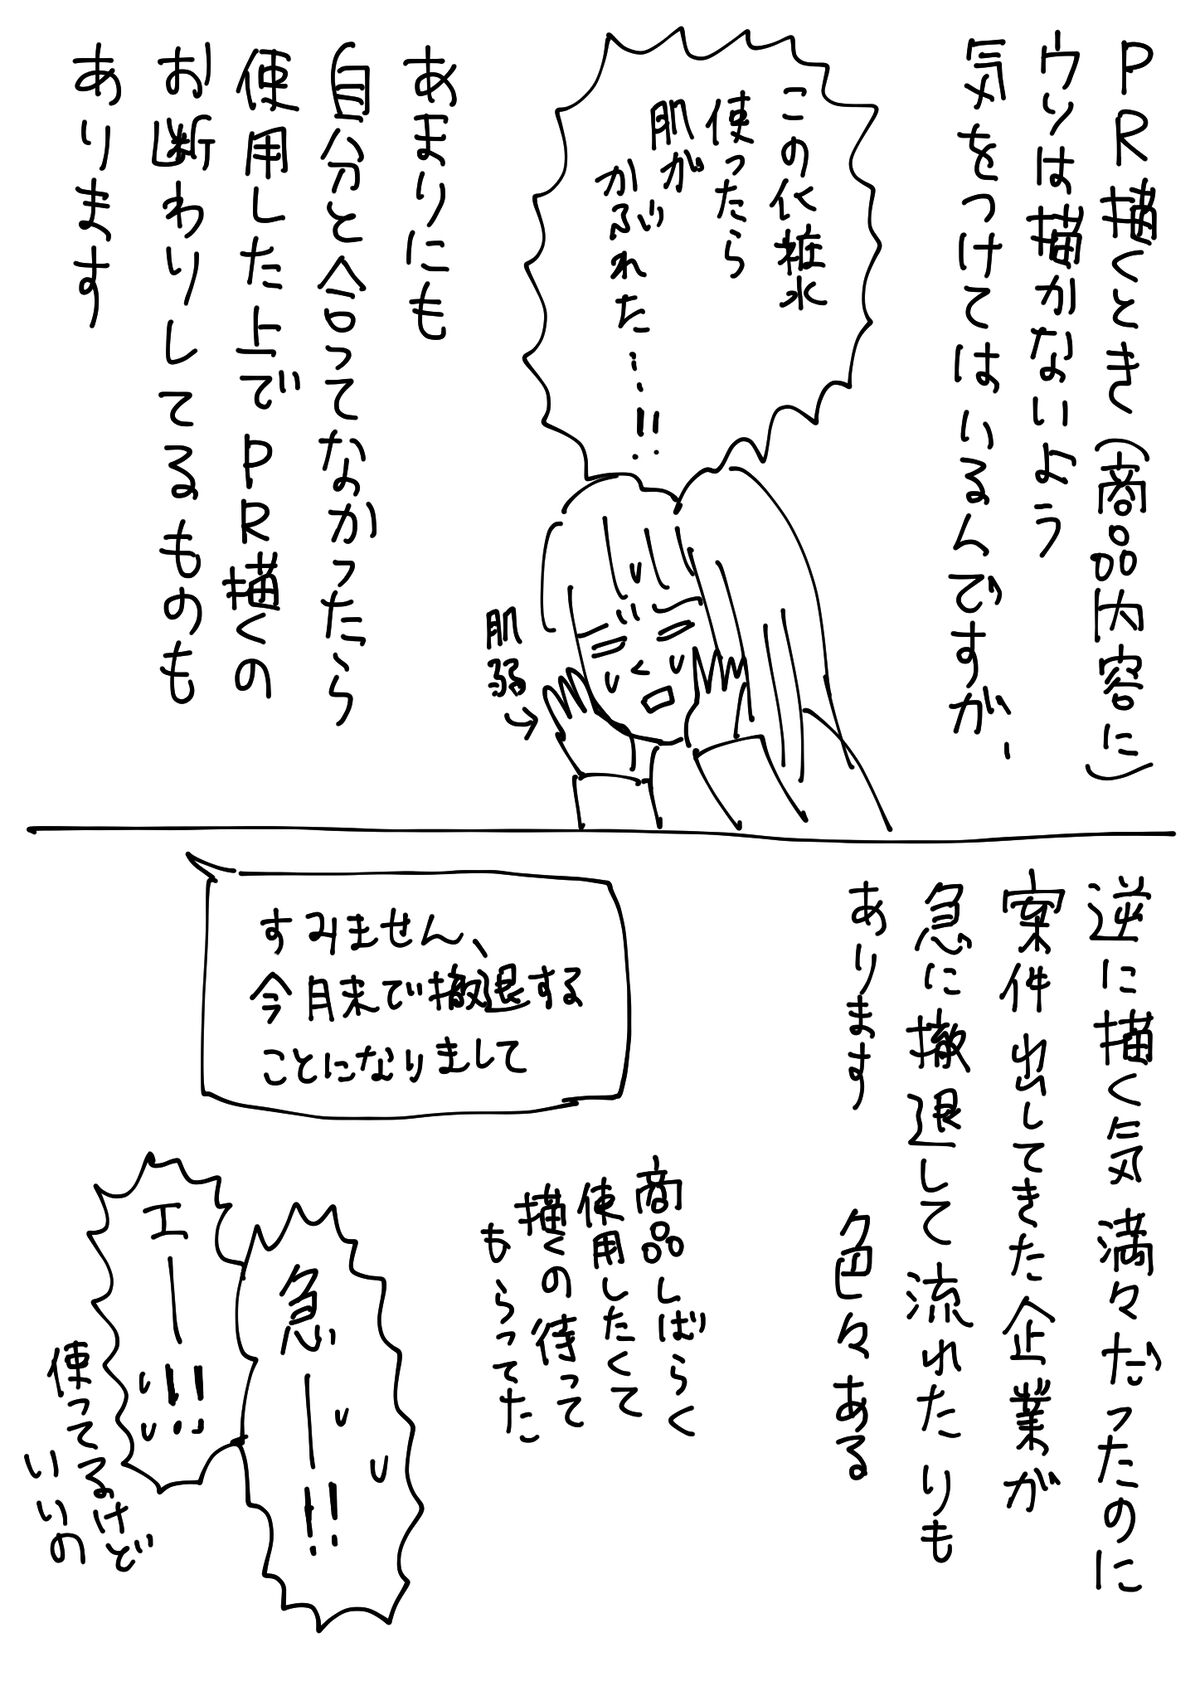 PR描くとき(商品内容に)
ウソは描かないよう
気をつけてはいるんですが、
この化粧水
使ったら
肌が
かぶれた……!!
肌
弱
あまりにも
自分と合ってなかったら
使用した上でPR描くの
お断わりしてるものも
あります
逆に描く気満々だったのに
案件出してきた企業が
急に撤退して流れたりも
あります 色々ある
すみません、
今月末で撤退する
ことになりまして
商品しばらく
使用したくて
描くの待って
もらってた
急ー!!
エー!!!
使ってるけど
いいの